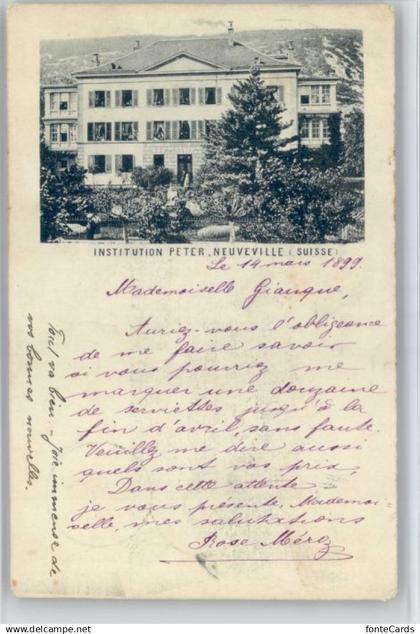 INSTITUTION PETER, NEUVEVILLE (SUISSE)
Le 14 mars 1899.
Mademoiselle Gianque,
Auriez-vous l'obligeance
de me faire savoir
si vous pourriez me
marquer une douzaine
de serviettes jusqu'à la
fin d'avril, sans faute.
Veuillez me dire aussi
quels sont vos prix.
Dans cette attente
je vous présente, Mademoi-
selle, mes salutations
Rose Méroz
Tout va bien – Joie immense de
vos bonnes nouvelles.
www.delcampe.net
fonteCards